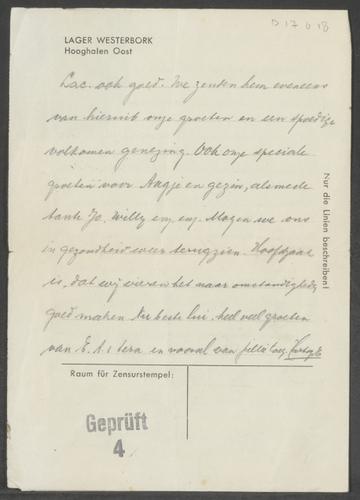 D 17 6 18
LAGER WESTERBORK
Hooghalen Oost
Lac. ook goed. We zenden hem eveneens
van hieruit onze groeten en een spoedige
volkomen genezing. Ook onze speciale
groeten voor Aagje en gezin, alsmede
tante Jo, Willy enz. enz. Mogen we ons
in gezondheid weer terugzien. Hoofdzaak
is, dat wij vieren het naar omstandigheden
goed maken. Nu beste lui, heel veel groeten
van E. A. en vooral van jullie
Nur die Linien beschreiben!
Raum für Zensurstempel:
Geprüft
4